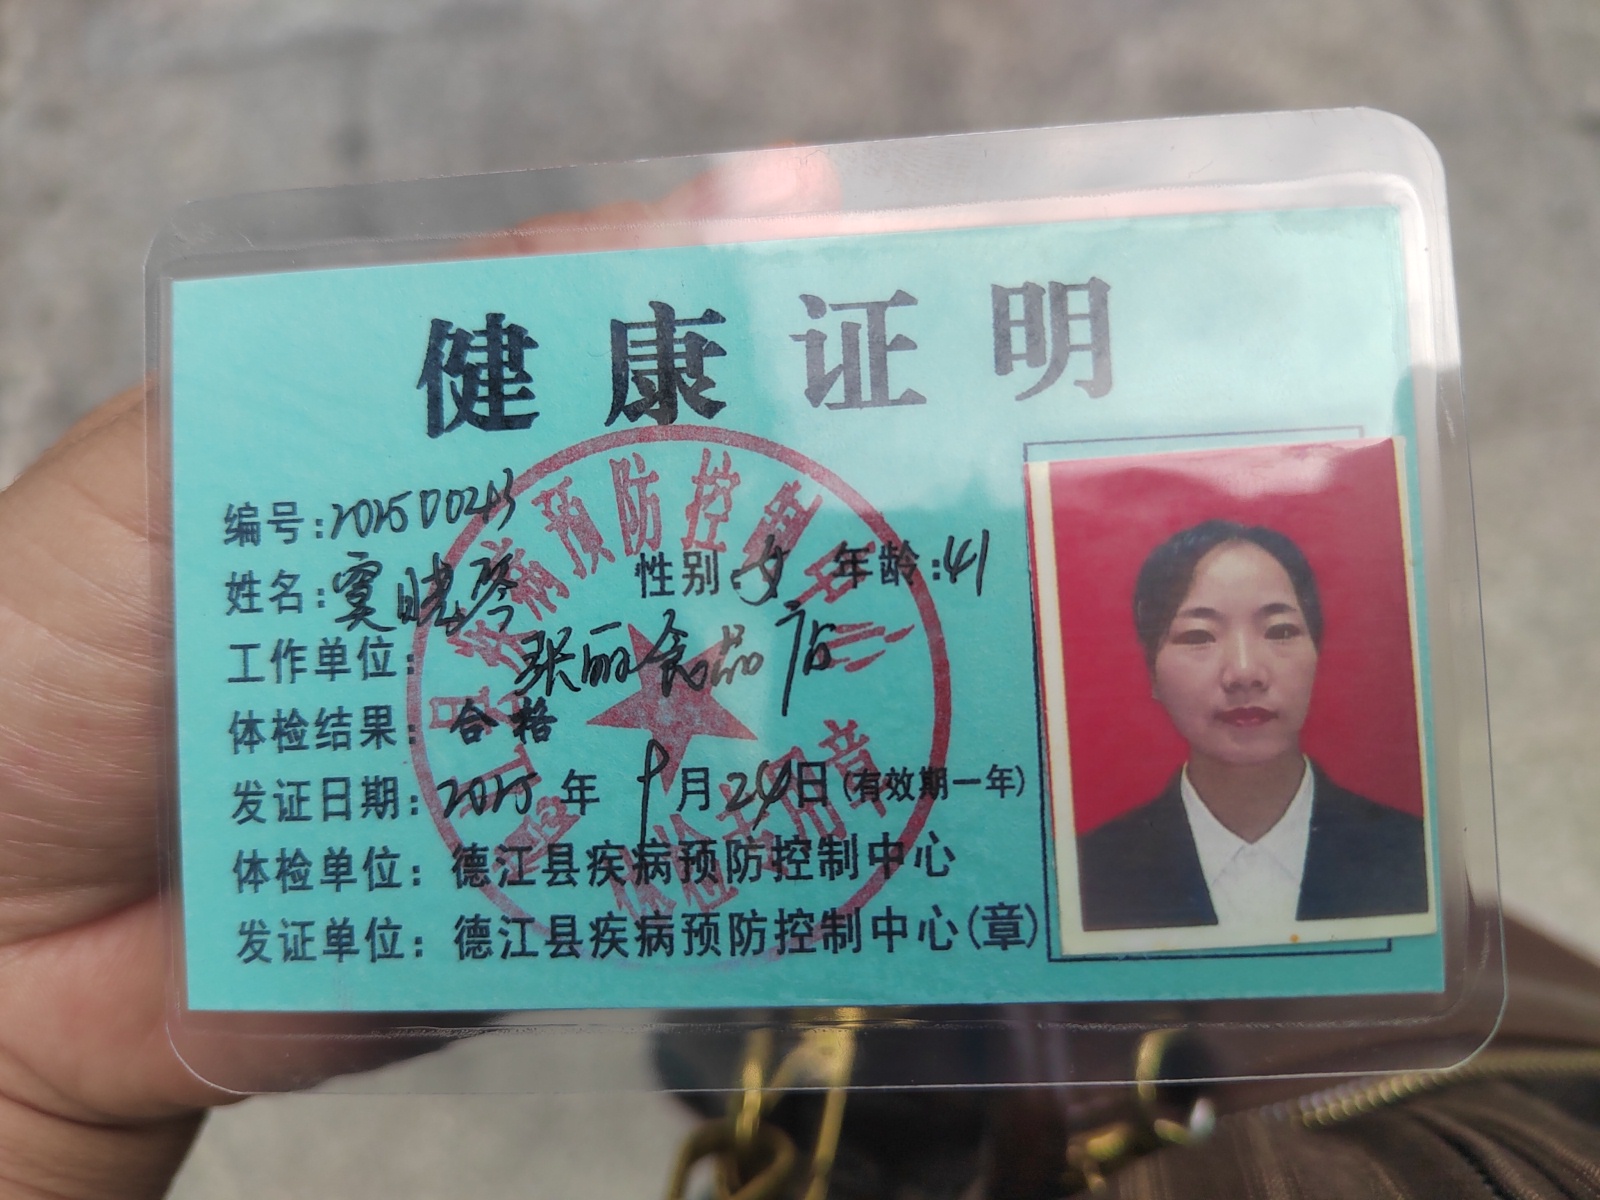 健康证明
编号:2025D0243
姓名:覃晓琴 性别:女 年龄:41
工作单位: 张丽食品店
体检结果: 合格
发证日期: 2025年 9月24日(有效期一年)
体检单位: 德江县疾病预防控制中心
发证单位: 德江县疾病预防控制中心(章)